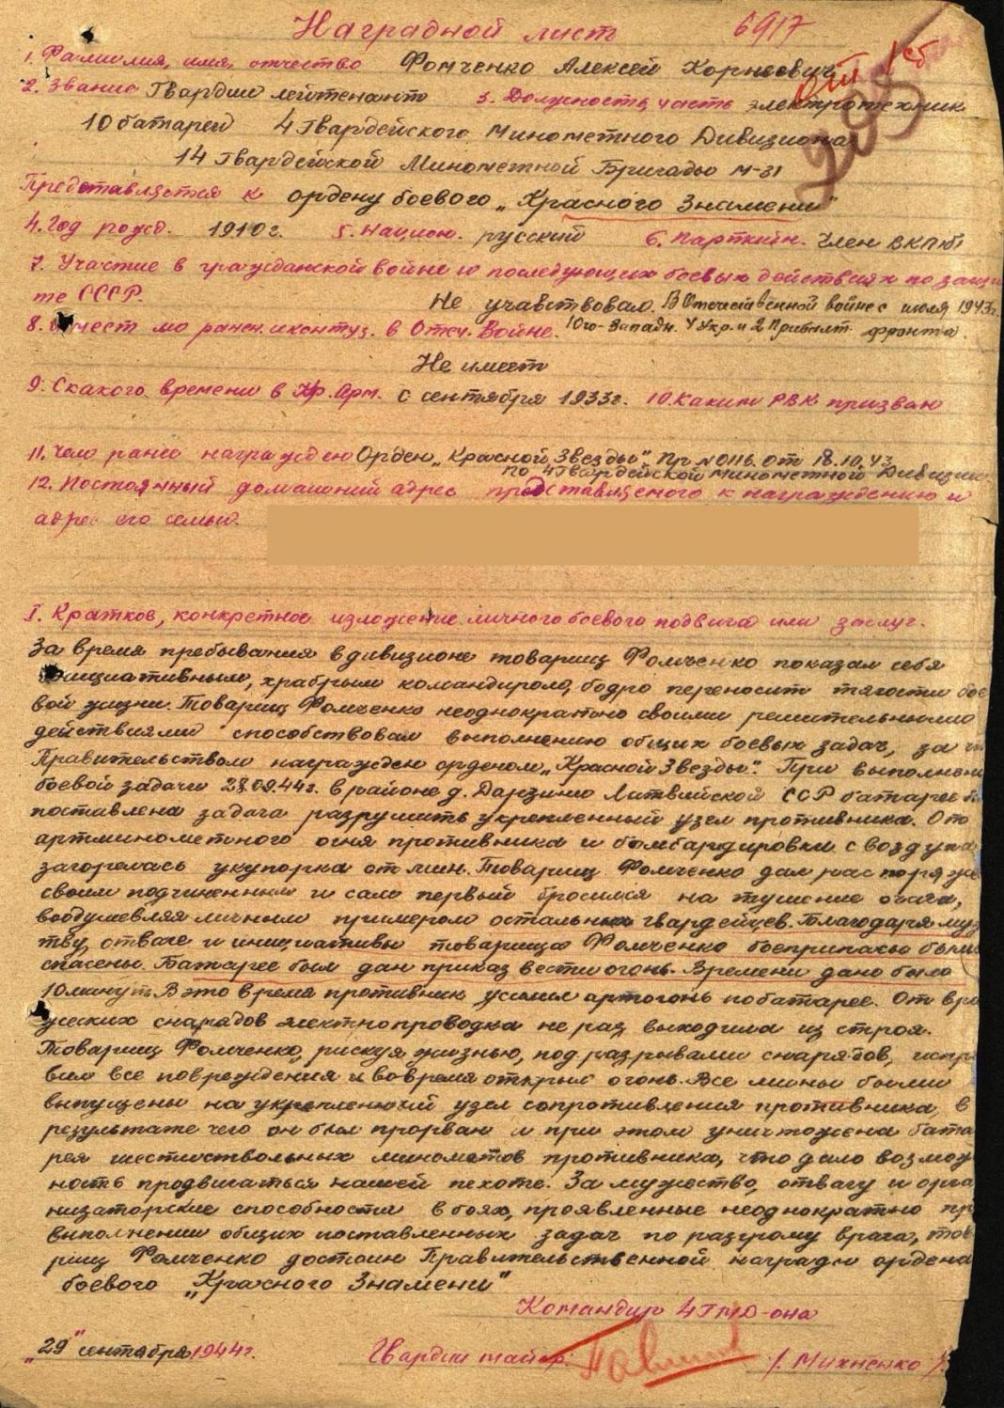 Наградной лист 6917
1. Фамилия, имя, отчество Фомченко Алексей Корнеевич
2. Звание Гвардии лейтенант 3. Должность, часть электротехник
10 батареи 4 Гвардейского Минометного Дивизиона
14 Гвардейской Минометной Бригады М-31
Представляется к ордену боевого „Красного Знамени"
4. Год рожд. 1910г. 5. Национ. русский 6. Партийн. Член ВКП(б)
7. Участие в гражданской войне и последующих боевых действиях по защи
те СССР. Не учавствовал. В Отечественной войне с июля 1943г.
8. Имеет ли ранен. и контуз. в Отеч. Войне. Юго-Западн. 4 Укр. и 2 Прибалт. фронта.
Не имеет
9. С какого времени в Кр. Арм. с сентября 1933г. 10. Каким РВК призван
11. Чем ранее награжден Орден „Красной Звезды" Пр №011б. от 18.10.43
по 4 Гвардейской минометной Дивизии
12. Постоянный домашний адрес представляемого к награждению и
адрес его семьи.
I. Краткое, конкретное изложение личного боевого подвига или заслуг.
За время пребывания в дивизионе товарищ Фомченко показал себя
инициативным, храбрым командиром, бодро переносит тягости бое
вой жизни. Товарищ Фомченко неоднократно своими решительными
действиями способствовал выполнению общих боевых задач, за что
Правительством награжден орденом „Красной Звезды". При выполнени
боевой задачи 28.09.44г. в районе д. Дарзини Латвийской ССР батарее
поставлена задача разрушить укрепленный узел противника. От
артминометного огня противника и бомбардировки с воздуха
загорелась укупорка от мин. Товарищ Фомченко дал распоряже
своим подчиненным и сам первый бросился на тушение огня,
воодушевляя личным примером остальных гвардейцев. Благодаря муж
тву, отваге и инициативы товарища Фомченко боеприпасы были
спасены. Батарее был дан приказ вести огонь. Времени дано было
10 минут. В это время противник усилил артогонь по батарее. От вра
жеских снарядов электропроводка не раз выходила из строя.
Товарищ Фомченко, рискуя жизнью, под разрывами снарядов, испра
вил все повреждения и вовремя открыл огонь. Все мины были
выпущены на укрепленный узел сопротивления противника, в
результате чего он был прорван и при этом уничтожена бата
рея шестиствольных минометов противника, что дало возмож
ность продвигаться нашей пехоте. За мужество, отвагу и орга
низаторские способности в боях, проявленные неоднократно пр
выполнении общих поставленных задач по разгрому врага, тов
рищ Фомченко достоин Правительственной награды ордена
боевого „Красного Знамени"
Командир 4 ГМД-она
„29" сентября 1944г. Гвардии майор /. Михненко /.